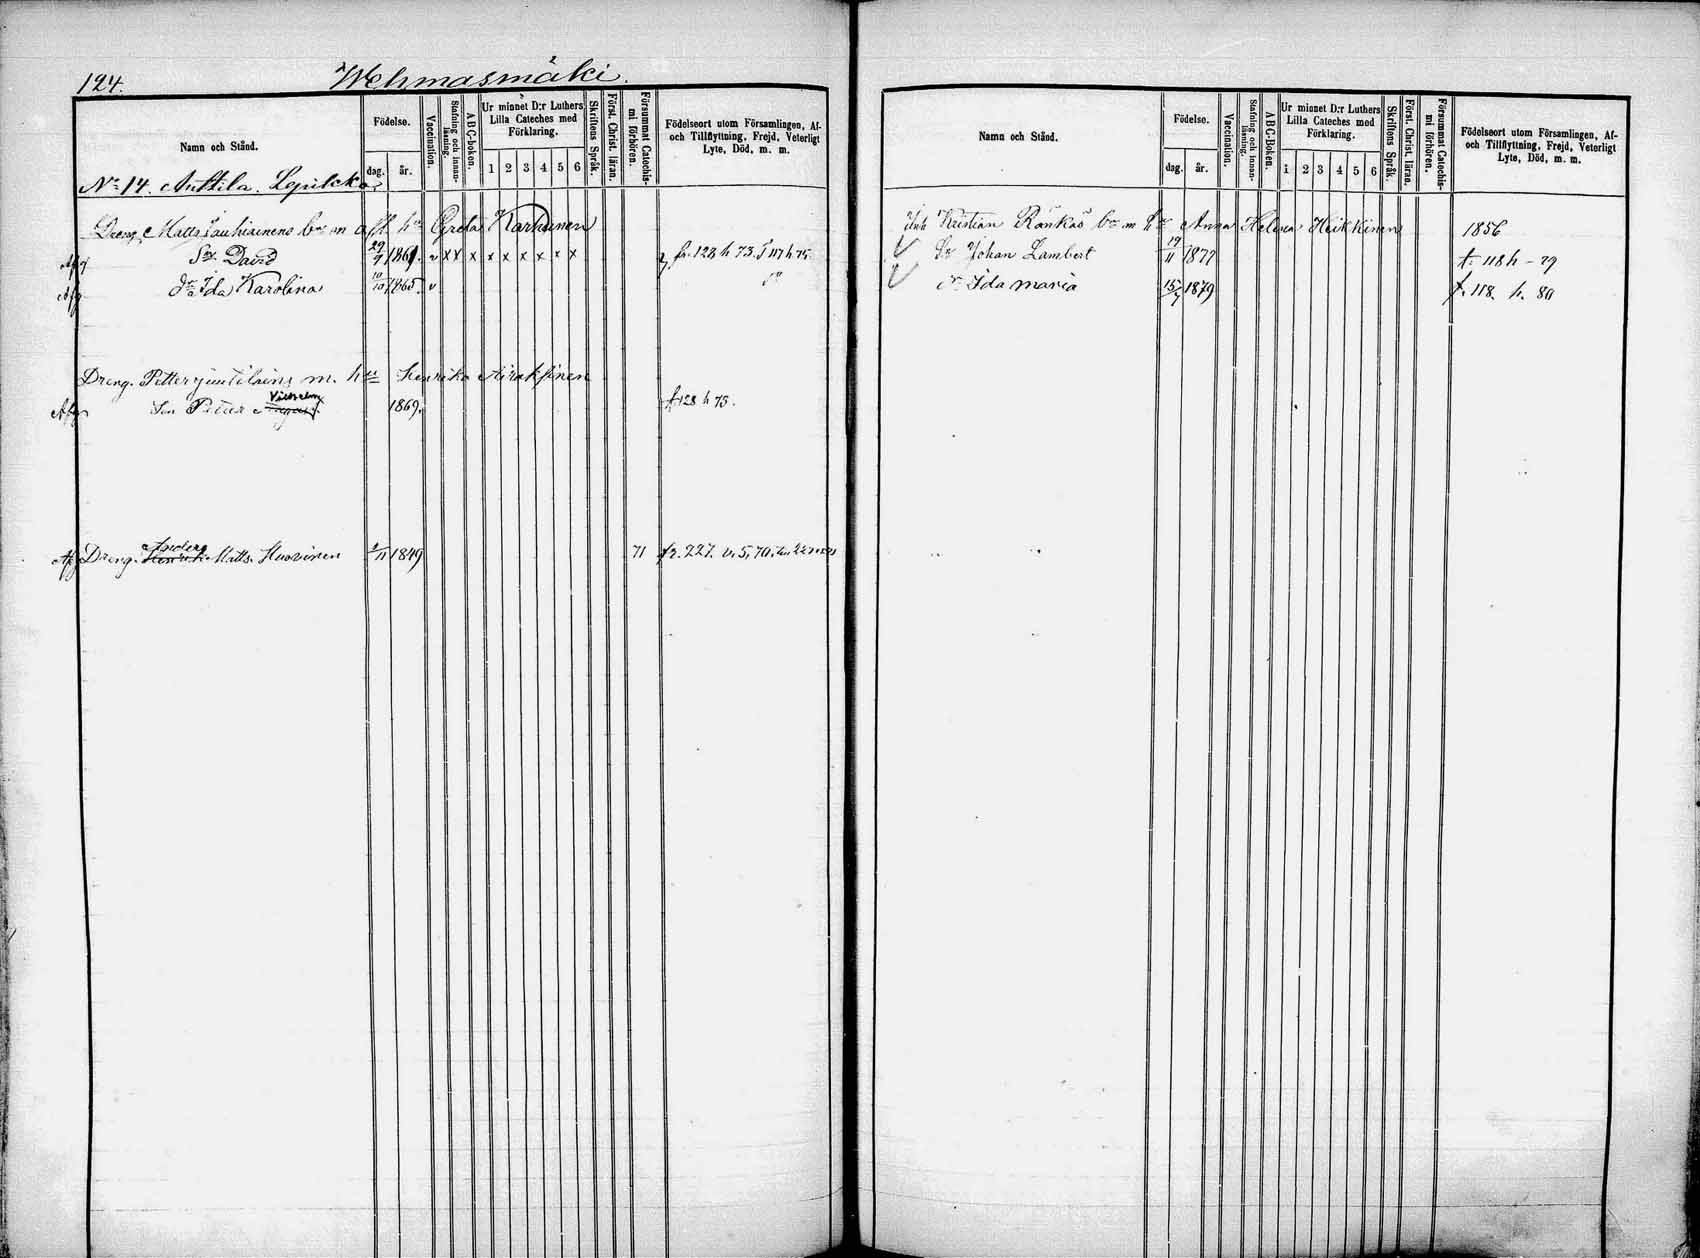 124. Wehmasmäki.
Namn och Stånd.
Födelse.
dag. år.
Vaccination.
Stafning och innan-läsning.
A B C-boken.
Ur minnet D:r Luthers Lilla Cateches med Förklaring.
1 2 3 4 5 6
Skriftens Språk.
Först. Christ. läran.
Försummat Catechis-mi förhören.
Födelseort utom Församlingen, Af- och Tillflyttning, Frejd, Veterligt Lyte, Död, m. m.
No 14. Anttila
Dreng Matts bn m afl. hu Greta Karhunen
Afg Son David 29/7 1861. v x x x x x x x x x fr. 128 h 73. T 117 h 75
Afg dr Ida Karolina 10/10 1865. v do
Dreng. Petter m. hu Henrika Airaksinen
Afg Son Petter Vilhelm 1869. fr 128 h 75.
Afg Dreng. Anders Matts. Huovinen 1849 71 fr. 227. v. 5, 70.
Namn och Stånd.
Födelse.
dag. år.
Vaccination.
Stafning och innan-läsning.
A B C-boken.
Ur minnet D:r Luthers Lilla Cateches med Förklaring.
1 2 3 4 5 6
Skriftens Språk.
Först. Christ. läran.
Försummat Catechis-mi förhören.
Födelseort utom Församlingen, Af- och Tillflyttning, Frejd, Veterligt Lyte, Död, m. m.
Inh Kristian Rönkäs bn m hu Anna Helena Heikkinen 1856
Sn Johan Lambert 19/11 1877 t. 118 h - 79
dr Ida Maria 15/7 1879 t. 118. h. 80